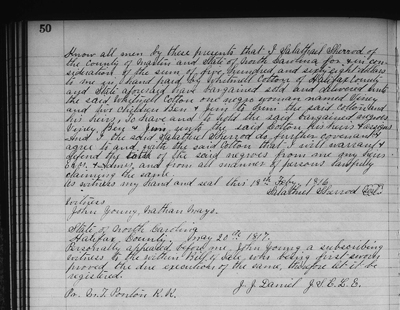 50
Know all men by these presents that I Salathiel Sherrod of
the County of Martin and State of North Carolina for & in con-
sideration of the sum of five hundred and sixty eight dollars
to me in hand paid by Whitwell Cotton of Halifax County
and State aforesaid have bargained sold and delivered unto
the said Whitwell Cotton one negro woman named Viney
and two Children Ben & Jim to him the said Cotton and
his heirs, to have and to hold the said bargained negroes
Viney, Ben & Jim, unto the said Cotton his heirs & assigns
And I the said Salathiel Sherrod do further covenant &
agree to and with the said Cotton that I will warrant &
defend the of the said negroes from me my heirs
Exrs. & Admr. and from all manner of persons lawfully
claiming the same.
As witness my hand and seal this 18th Feby. 1816.
Witness Salathiel Sherrod
John Young, Nathan Mayo.
State of North Carolina
Halifax County, May 20th 1817.
Personally appeared before me John Young a subscribing
witness to the within Bill of Sale, who being first sworn
proved the due execution of the same, therefore let it be
registered.
J. J. Daniel J.S.C.L.E.
Pr. M. T. Ponton R.R.